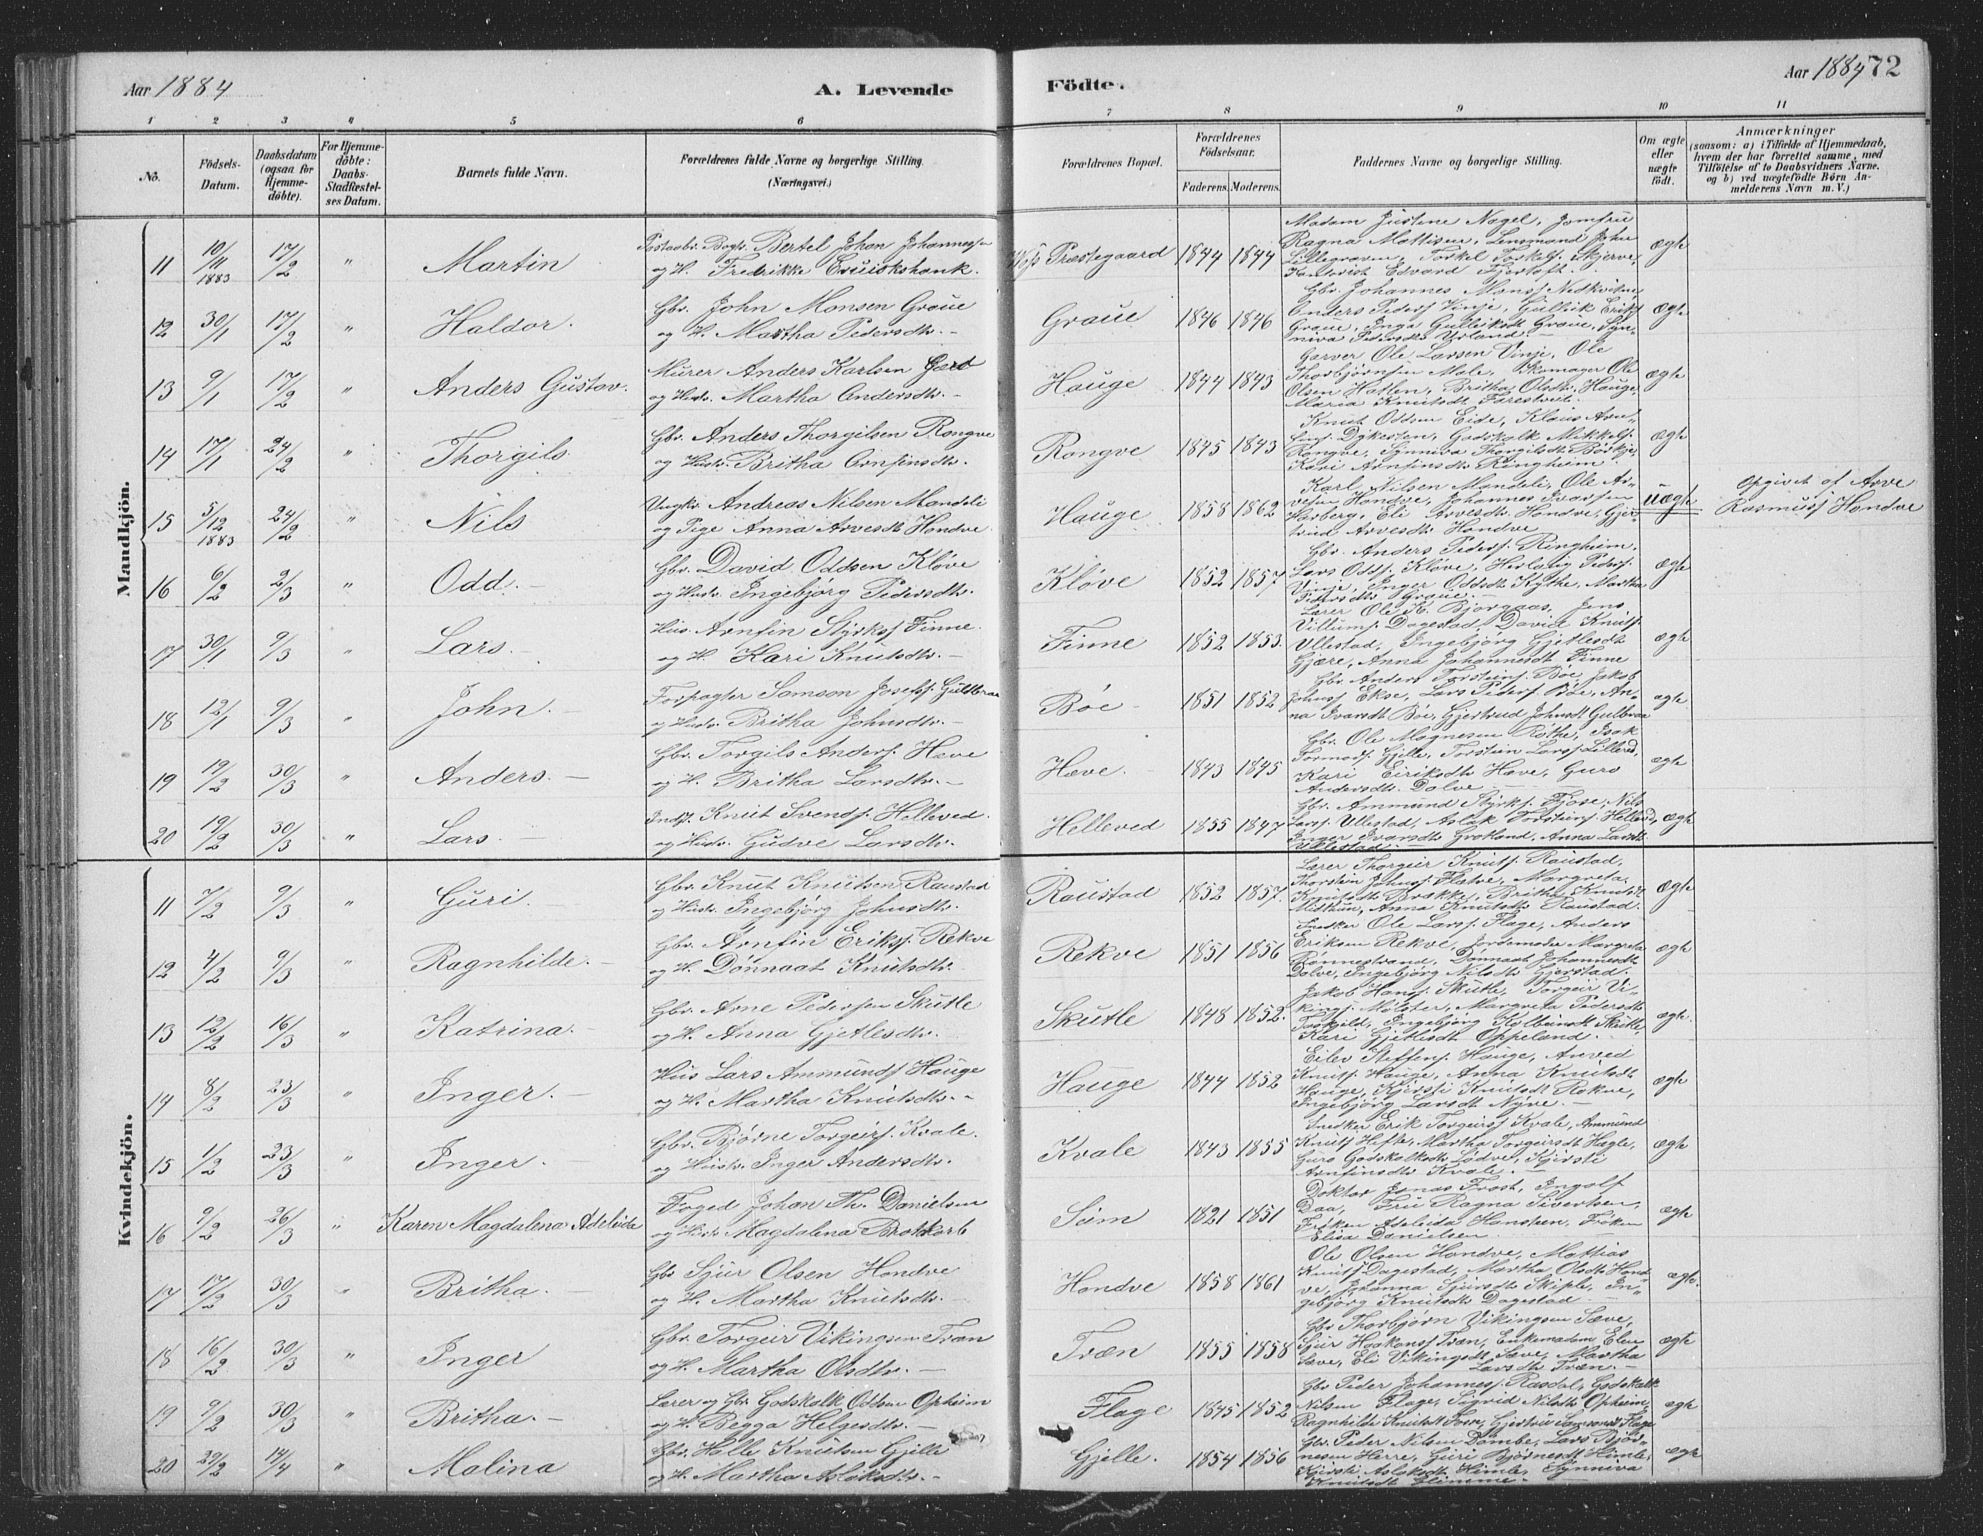 Aar 1884
A. Levende
Födte.
Aar 1884
72
1 2 3 4 5 6 7 8 9 10 11
No.
Födsels-Datum.
Daabsdatum (ogsaa for Hjemme-döbte).
For Hjemme-döbte: Daabs-Stadfæstel-ses Datum.
Barnets fulde Navn.
Forældrenes fulde Navne og borgerlige Stilling.
(Næringsvei.)
Forældrenes Bopæl.
Forældrenes Födselsaar.
Faderens. Moderens.
Faddernes Navne og borgerlige Stilling.
Om ægte eller uægte födt.
Anmærkninger
(saasom: a) i Tilfælde af Hjemmedaab, hvem der har forrettet samme, med Tilföielse af to Daabsvidners Navne. og b) ved uægtefödte Börn An-melderens Navn m. V.)
Mandkjön.
11 10/11 1883 17/2 " Martin
Bertel Johan Johannessen
og H. Fredrikke
Præstegaard 1844 1844
Madam Justine Nagel, Jomfru
Ragna Mattisen, Lensmand John
Lillegraven, Torkel Torkels. Skjerve,
Edvard Fjertoft.
ægte
12 30/1 17/2 " Haldor.
Gbr. John Monsen Graue
og H. Martha Pedersdtr.
Graue 1846 1846
Gbr. Johannes Monss Nedkvitne,
Anders Peders Vinje, Gullik Eriks
Graue, Inga Gulleiksdt Graue, Syn-
niva Pedersdtr Urland
ægte
13 9/1 17/2 " Anders Gustav.
Murer Anders Karlsen
og Hustr. Martha Andersdtr.
Hauge 1844 1843
Garver Ole Larsen Vinje, Ole
Thorbjørnsen Male, Skomager Ole
Olsen Hatlen, Britha Olsdtr. Hauge,
Maria Knutsdt Farestveit.
ægte
14 17/1 24/2 " Thorgils
Gbr. Anders Thorgilsen Rongve
og Hustr. Britha Arnfinsdtr.
Rongve 1845 1843
Knut Oddsen Eide, Klaus Arn-
fins. Dykesten, Godskalk Mikkels.
Rongve, Synniva Thorgilsdt
Kari Arnfinsdt Ringheim
ægte
15 5/12 1883 24/2 " Nils
Ungkr. Andreas Nilsen Mandeli
og Pige Anna Arvesdt Hondve
Hauge 1858 1862
Karl Nilsen Mandeli, Ole Ar-
vesen Hondve, Johannes Ivarsen
Varberg, Eli Arvesdtr Hondve, Gjer-
trud Arvesdtr Hondve
uægte
Opgivet af Arve
Rasmuss Hondve
16 6/2 2/3 " Odd.
Gbr. David Oddsen Kløve
og Hustr. Ingebjørg Pedersdtr.
Kløve 1852 1857
Gbr. Anders Peders. Ringheim,
Lars Odds. Kløve, Herlaug Peders.
Vinje, Inger Oddsdt Kythe, Martha
Pedersdtr Graue.
ægte
17 30/1 9/3 " Lars.
Hus. Arnfin Styrks Finne.
og H. Kari Knutsdtr.
Finne 1852 1853.
Lærer Ole K. Bjørgaas, Jens
Villums. Dagestad, David Knuts.
Ullestad, Ingebjørg Gjetlesdt
Gjære, Anna Johannesdt Finne
ægte
18 12/1 9/3 " John.
Forpagter Samson Josefs. Guldbraa
og Hustr. Britha Johnsdtr.
Bøe 1851 1852
Gbr. Anders Torsteins. Bøe, Jakob
Johns. Ekse, Lars Peders. Bøe, An-
na Ivarsdt Bøe, Gjertrud Johnsdt Gulbraa
ægte
19 19/2 30/3 " Anders.
Gbr. Torgils Anders. Hæve
og H. Britha Larsdtr.
Hæve. 1843 1845
Gbr. Ole Magnesen Røthe, Isak
Tormods. Gjelle, Torstein Lars.
Kari Eiriksdtr Hæve, Guro
Andersdtr. Dolve.
ægte
20 19/2 30/3 " Lars.
Knut Svends. Helleved.
og Hustr. Gudve Larsdtr.
Helleved 1855 1847
Gbr. Ammund Styrks. Fjose, Nils
Lars. Ullestad, Aslak Torsteins.
Inger Ivarsdt Grotland, Anna Larsdt
Ullestad.
ægte
Kvindekjön.
11 7/2 9/3 " Guri.
Gbr. Knut Knutsen Raustad
og Hustr. Ingebjørg Johnsdtr.
Raustad 1852 1857.
Lærer Thorgeir Knuts. Raustad,
Thorstein Johns. Hæve, Margreta
Knutsdt Brække, Britha Knutsdt
Midthun, Anna Knutsdtr Raustad.
ægte
12 4/2 9/3 " Ragnhilde.
Gbr. Arnfin Eriks. Rekve
og H. Dønnaat Knutsdtr.
Rekve 1851 1856
Snedker Ole Lars. Flage, Anders
Eriksen Rekve, Jordemoder Margreta
Rønnestrand, Dønnaat Johannesdt
Dolve, Ingebjørg Nilsdtr Gjerstad.
ægte
13 12/2 16/3 " Katrina.
Gbr. Arne Pedersen Skutle
og H. Anna Gjetlesdtr.
Skutle 1848 1852.
Jakob Hans. Skutle, Torgeir Vi-
kings. Mølster, Margreta Pedersdt
Ingebjørg Kolbeinsdt Skutle
Kari Gjetlesdt Oppeland.
ægte.
14 8/2 23/3 " Inger.
Hus Lars Ammunds Hauge
og H. Martha Knutsdtr.
Hauge 1844 1852
Eilev Steffens. Hauge, Anved
Knuts. Hauge, Anna Knutsdt
Hauge, Kjersti Knutsdt Rokne,
Ingebjørg Larsdt Nyre.
ægte
15 1/2 23/3 " Inger.
Gbr. Bjørne Torgeirs. Kvale.
og Hustr. Inger Andersdtr.
Kvale 1843 1855
Snedker Erik Torgeirss Kvale, Ammund
Knuts. Hefte, Martha Torgeirsdt Hægle,
Guro Godskalksdt Lødve, Kjersti
Arnfinsdtr Kvale.
ægte
16 9/2 26/3 " Karen Magdalena Adeleida
Foged Johan Th. Danielsen
og Hustr. Magdalena Brokkorb
Seim 1821 1851
Doktor Jonas Frost, Ingolf
Daa, Fru Ragna Sivertsen,
Frøken Adeleida Hansteen, Frøken
Elisa Danielsen.
ægte
17 17/2 30/3 " Britha.
Gbr Sjur Olsen Hondve
og H. Martha Knutsdtr.
Hondve 1858 1861
Ole Olsen Hondve, Mattias
Knuts. Dagestad, Martha Olsdt Hond-
ve, Johanna Sjursdt Skiple, In-
gebjørg Knutsdt Dagestad
ægte.
18 16/2 30/3 " Inger
Gbr. Torgeir Vikingsen Træn
og H. Martha Olsdtr.
Træn 1855 1858
Gbr Thorbjørn Vikingsen Sæve,
Sjur Haakons. Træn, Enkemadam Elen
Sæve, Eli Vikingsdt Sæve, Martha
Larsdtr Træn.
ægte
19 9/2 30/3 " Britha.
Lærer og Gbr Godskalk Oddsen Opheim
og H. Begga Helgesdtr.
Flage 1845 1852
Gbr Peder Johannes. Rasdal, Godskalk
Nilsen Flage, Sigrid Nilsdt Opheim,
Ragnhilde Knutsdt Gjertrud Samsonsdt Flage
ægte
20 29/2 14/4 " Malina
Gbr. Helle Knutsen Gjelle
og H. Martha Aslaksdtr.
Gjelle. 1854 1856
Gbr. Peder Nilsen Dømbe, Lars Bjør-
nesen Herre, Guri Bjørnesdt Himle,
Kjersti Aslaksdt Himle, Synneva
Knutsdt
ægte